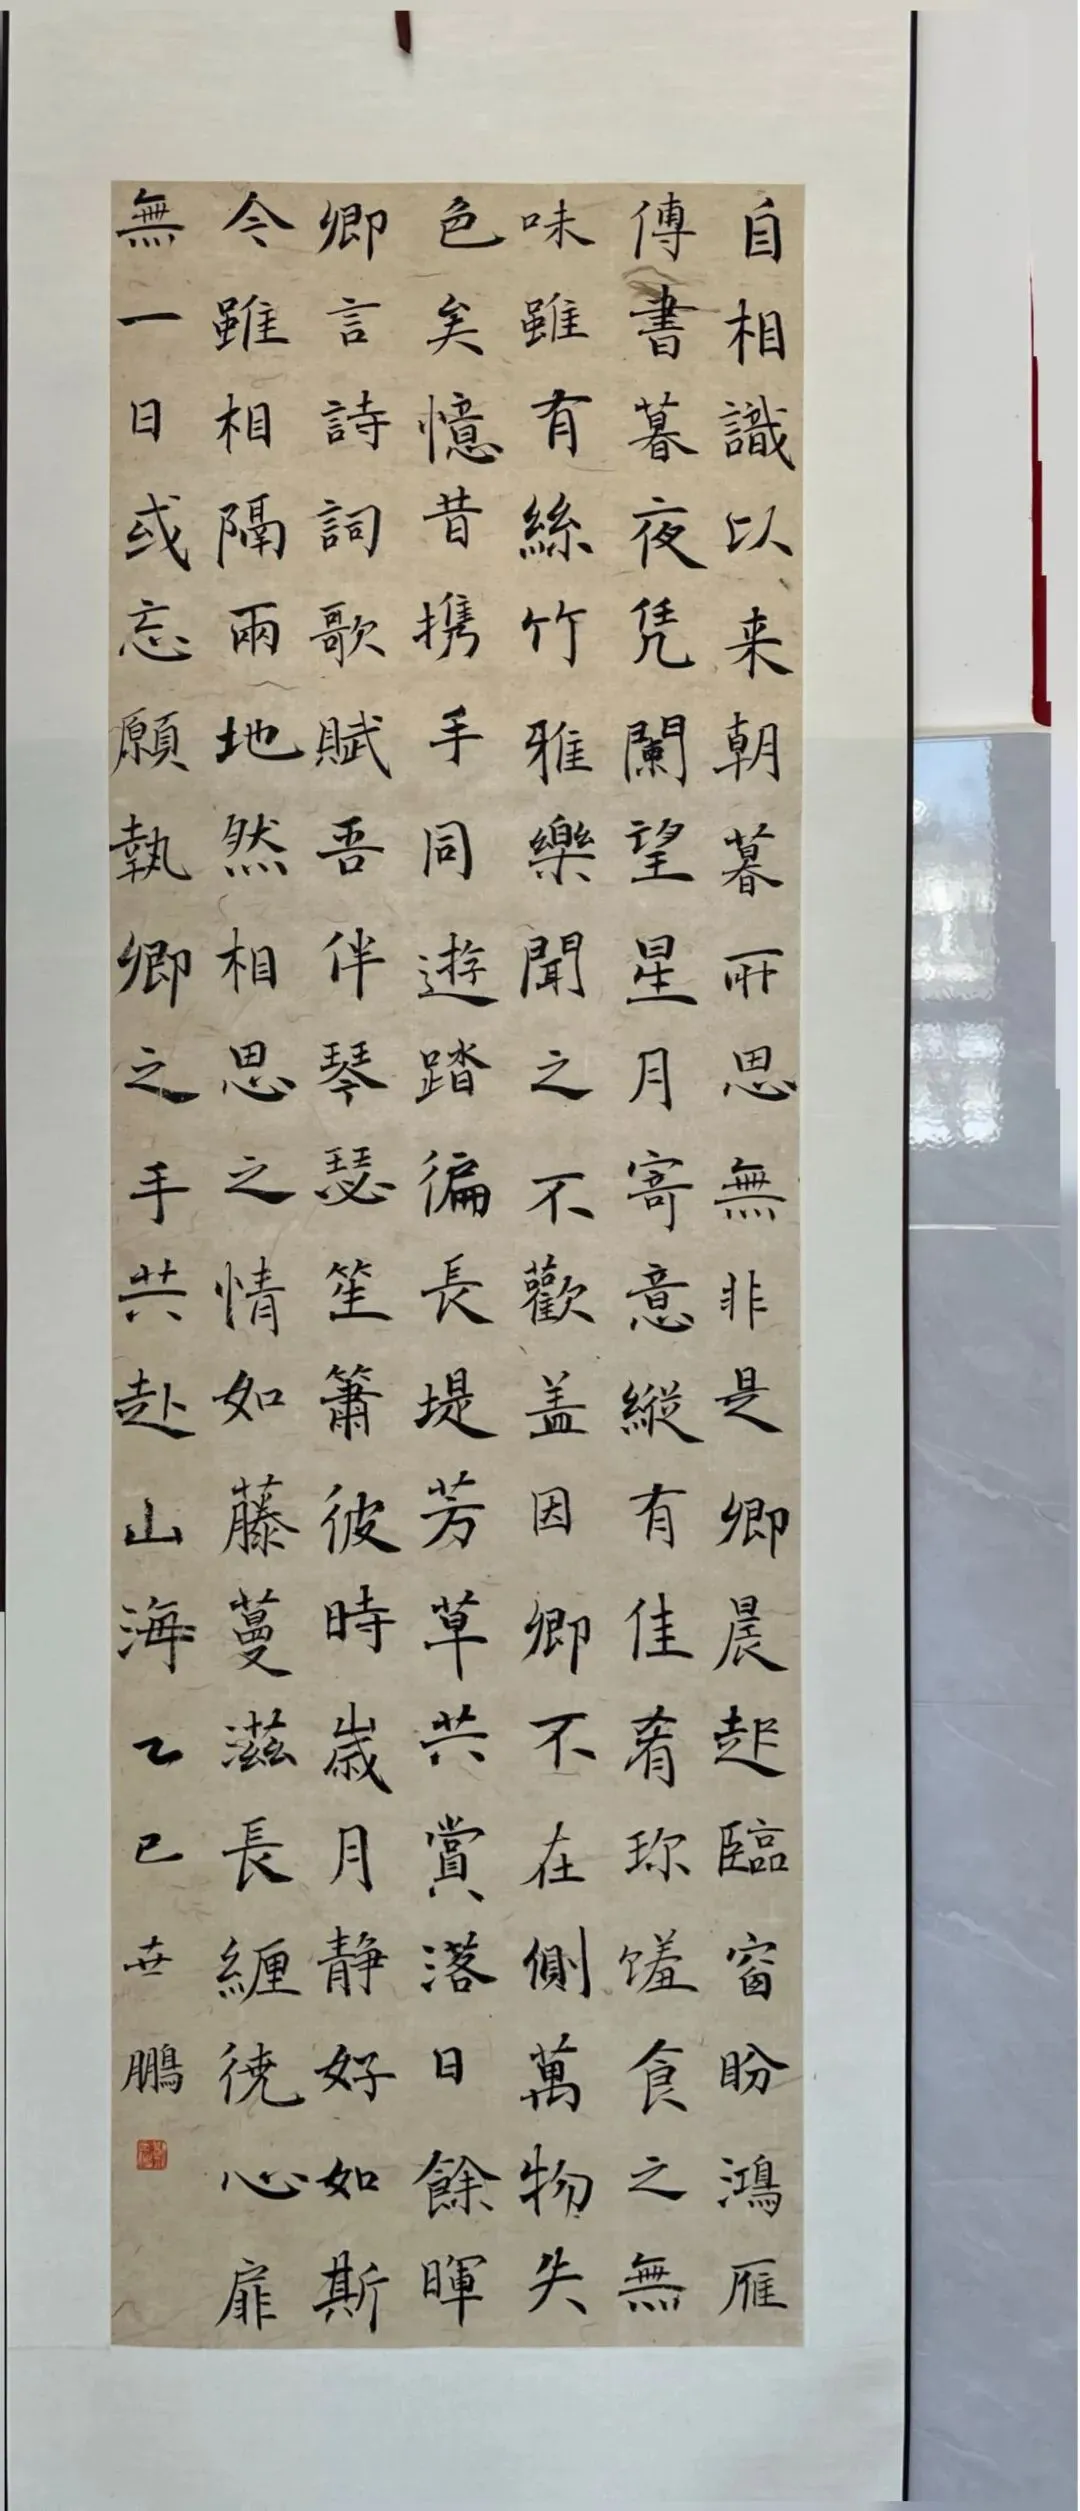 自相識以来朝暮所思無非是卿晨起臨窗盼鴻雁
傳書暮夜凭闌望星月寄意縱有佳肴珎饈食之無
味雖有絲竹雅樂聞之不歡盖因卿不在側萬物失
色矣憶昔携手同遊踏徧長堤芳草共賞落日餘暉
卿言詩詞歌賦吾伴琴瑟笙簫彼時歳月静好如斯
今雖相隔兩地然相思之情如藤蔓滋長纏繞心扉
無一日或忘願執卿之手共赴山海乙巳世鵬